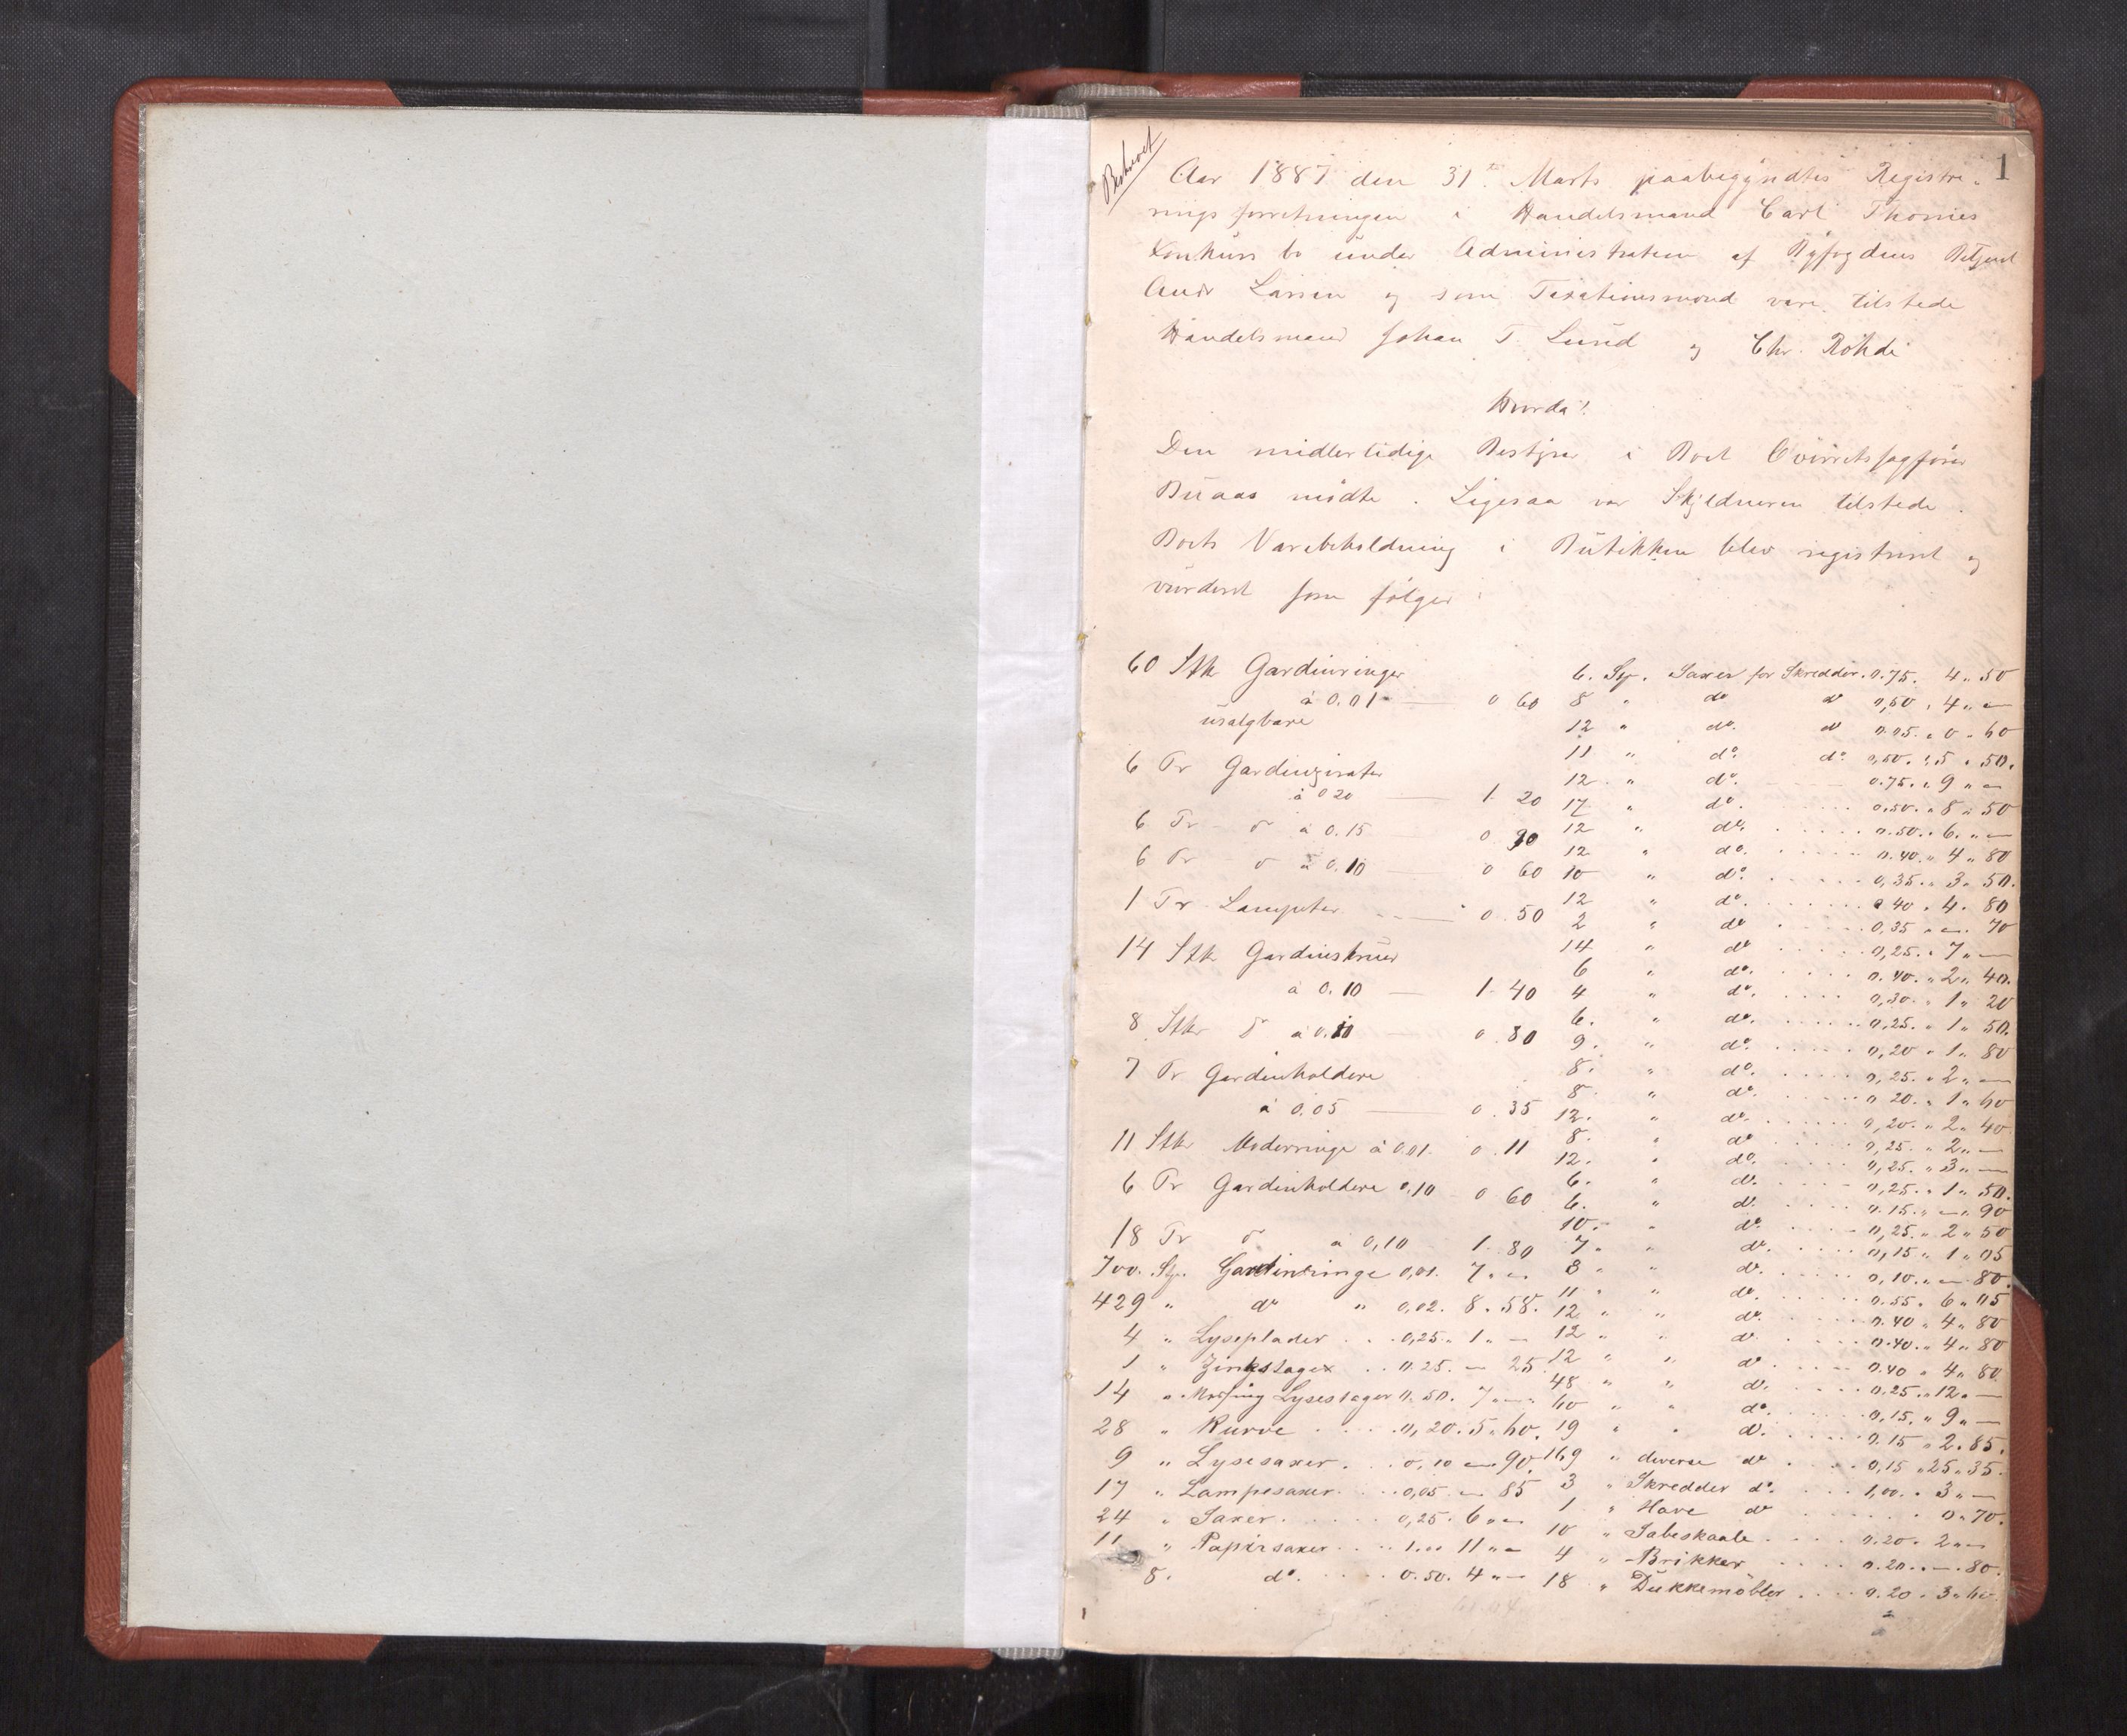 1
Beskrevet
Aar 1887 den 31te Marts paabegyndtes Registre-
ringsforretningen i Handelsmand Carl Thomes
Konkurs bo under Administration af Byfogdens Betjent
Andr Larsen og som Taxationsmænd vare tilstede
Handelsmænd Johan T. Lund og Chr. Rohde
Hvorda!
Den midlertidige Bestyrer i Boet Overretssagfører
Buaas mødte. Ligesaa var Skyldneren tilstede.
Boets Varebeholdning i Butikken blev registreret og
vurderet som følger:
60 Stk Gardinringer
à 0.01 — 0 60
usalgbare
6 Pr Gardinzirater
à 0 20 — 1. 20
6 Pr — do à 0.15 — 0 90
6 Pr — do à 0.10 — 0 60
1 Pr Lampetter — 0.50
14 Stk Gardinskruer
à 0.10 — 1. 40
8 Stkr do à 0.10 — 0.80
7 Pr Gardinholdere
à 0.05 — 0.35
11 Stkr Moderringe à 0.01. 0.11
6 Pr Gardinholdere 0,10 0 60
18 Pr do à 0,10 1. 80
700. Stp. Gardinringe 0,01. 7 " —
429 " do " 0,02. 8. 58.
4 " Lyseplader . . . 0,25. 1 " —
1 " Zinkstage . . 0.25. — 25.
14 " Messing Lysestager 0.50. 7 " —
28 " Kurve . . . . 0,20. 5 " 60.
9 " Lysesaxer. . . 0,10 — 90
17 " Lampesaxer. . . 0,05 — 85
24 " Saxer. . . . . 0,25. 6 " —
11 " Papirsaxer . . . 1.00 11 " —
8. do. . . . . 0.50. 4 " —
6. Stp. Saxer for Skredder. 0.75. 4 " 50
8 " do do 0,50 . 4 " —
12 " do. do 0.05. " 0 " 60
11 " do. do. 0,50. " 5 " 50.
12 " do. 0.75. " 9 " —
17 " do. . . . . 0.50. " 8 " 50
12 " do. . . . . 0.50. " 6. " —
12 " do. . . . . 0.40. " 4 " 80
10 " do. . . . . 0,35. " 3 " 50.
12 " do. . . . . 0 40 . 4. 80
2 " do . . . . 0,35 " — . 70
14 " do . . . . 0,25. " 7 " —
6 " do. . . . . 0.40. " 2 " 40.
4 " do. . . . . 0,30. " 1 " 20
6. " do. . . . . 0,25. " 1 " 50.
9. " do. . . . . 0,20 " 1 " 80
8. " do. . . . . 0,25. " 2 " —
8 " do. . . . . 0 20. " 1 " 60
12. " do. . . . . 0,20. " 2 " 40.
8. " do . . . . 0,25. " 2 " —
12. " do. . . . . 0,25. " 3 " —
6. " do. . . . . 0,25. " 1 " 50.
6. " do. . . . . 0.15. " — " 90
10. " do. . . . . 0,25. " 2 " 50
7 " " do. . . . . 0,15 " 1 " 05
8 " " do. . . . . 0,10. " — 80.
11 " " do. . . . . 0.55. 6 " 05
12 " " do. . . . . 0.40 " 4 " 80
12 " " do. . . . . 0.40. " 4 " 80
12 " " do . . . . 0.40 " 4 " 80.
48 " " do. . . . . 0.25. " 12. —
60 " " do. . . . . 0,15. " 9 " —
19 " " do. . . . . 0.15 " 2. 85.
169 " diverse do . . . . 0,15 " 25 " 35.
3 " Skredder do. . . . 1,00. " 3 " —
1 " Have do . . . . 0 " 70.
10 " Sabeskaale . . . . 0.20. 2 " —
4 " Brikker . . . . 0.20. " — . 80.
18 " Dukkemøbler . . . . 0.20 . 3 " 60